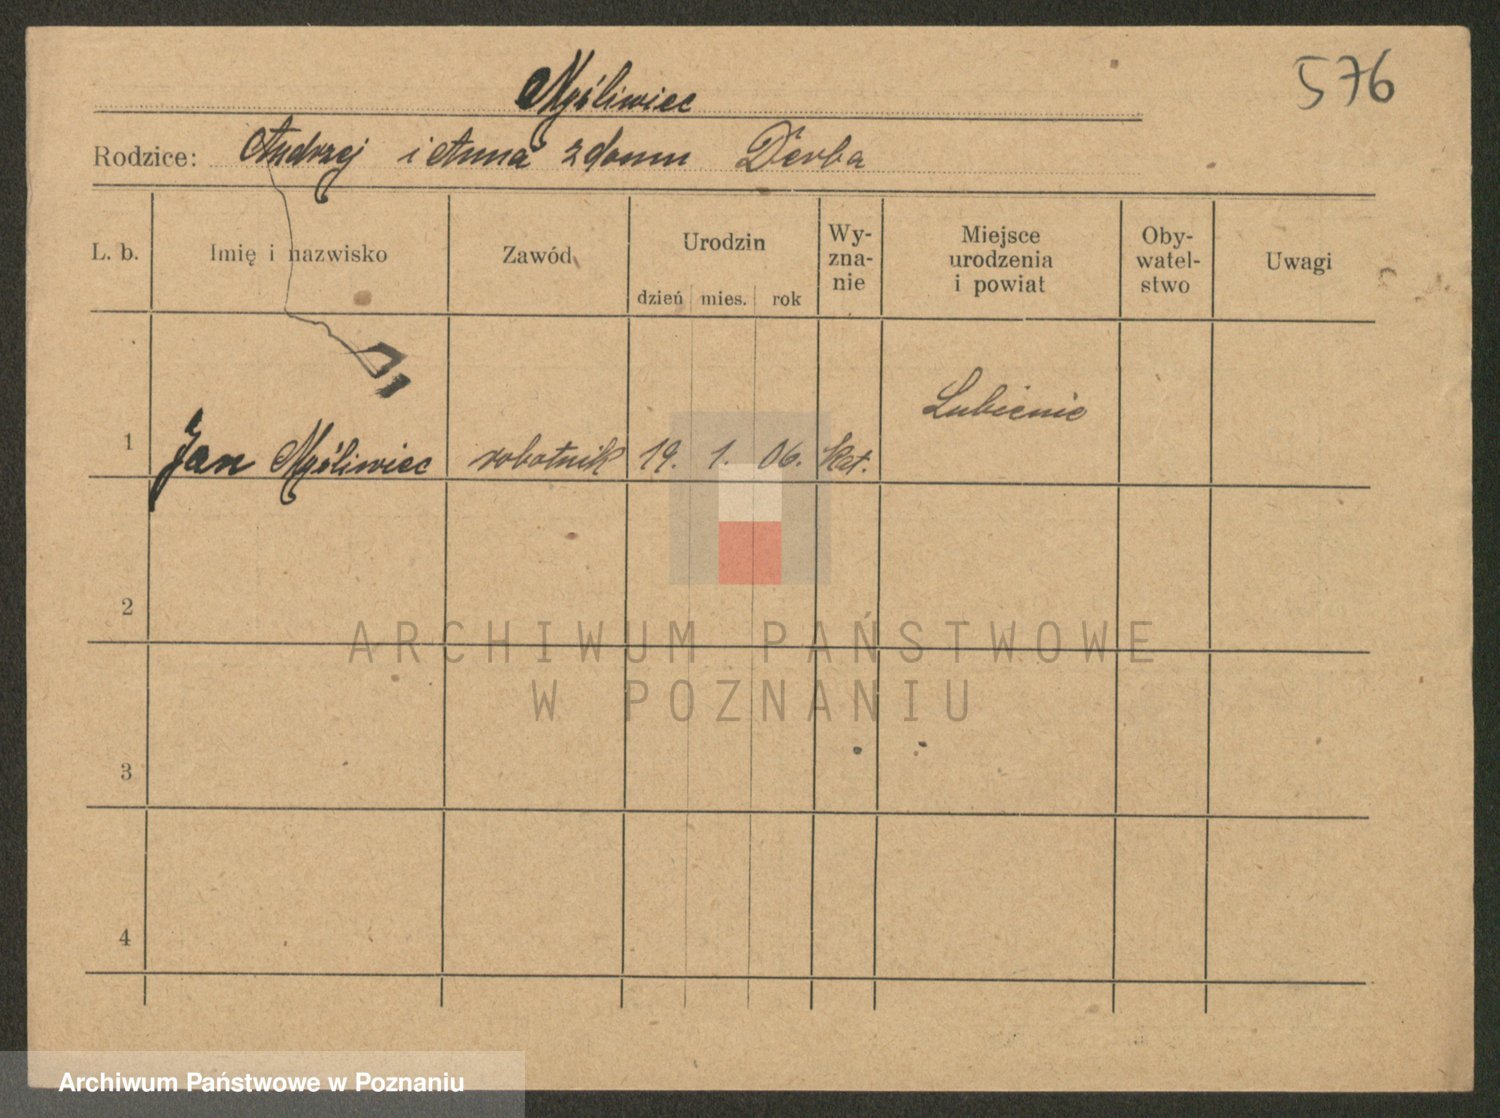 576
Myśliwiec
Rodzice: Andrzej i Anna z domu Derba
L. b. Imię i nazwisko Zawód Urodzin dzień mies. rok Wy-zna-nie Miejsce urodzenia i powiat Oby-watel-stwo Uwagi
1 Jan Myśliwiec robotnik 19. 1. 06. kat. Lubienie
2
3
4
ARCHIWUM PAŃSTWOWE
W POZNANIU
Archiwum Państwowe w Poznaniu